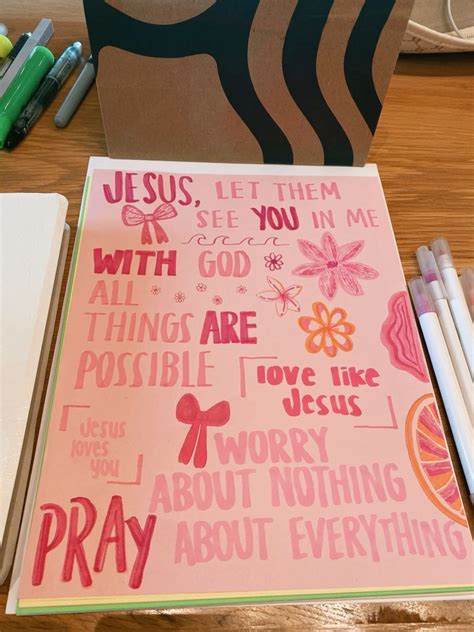 JESUS, LET THEM
SEE YOU IN ME
WITH GOD
ALL
THINGS ARE
POSSIBLE
love like
Jesus
Jesus
loves
you
WORRY
ABOUT NOTHING
PRAY ABOUT EVERYTHING